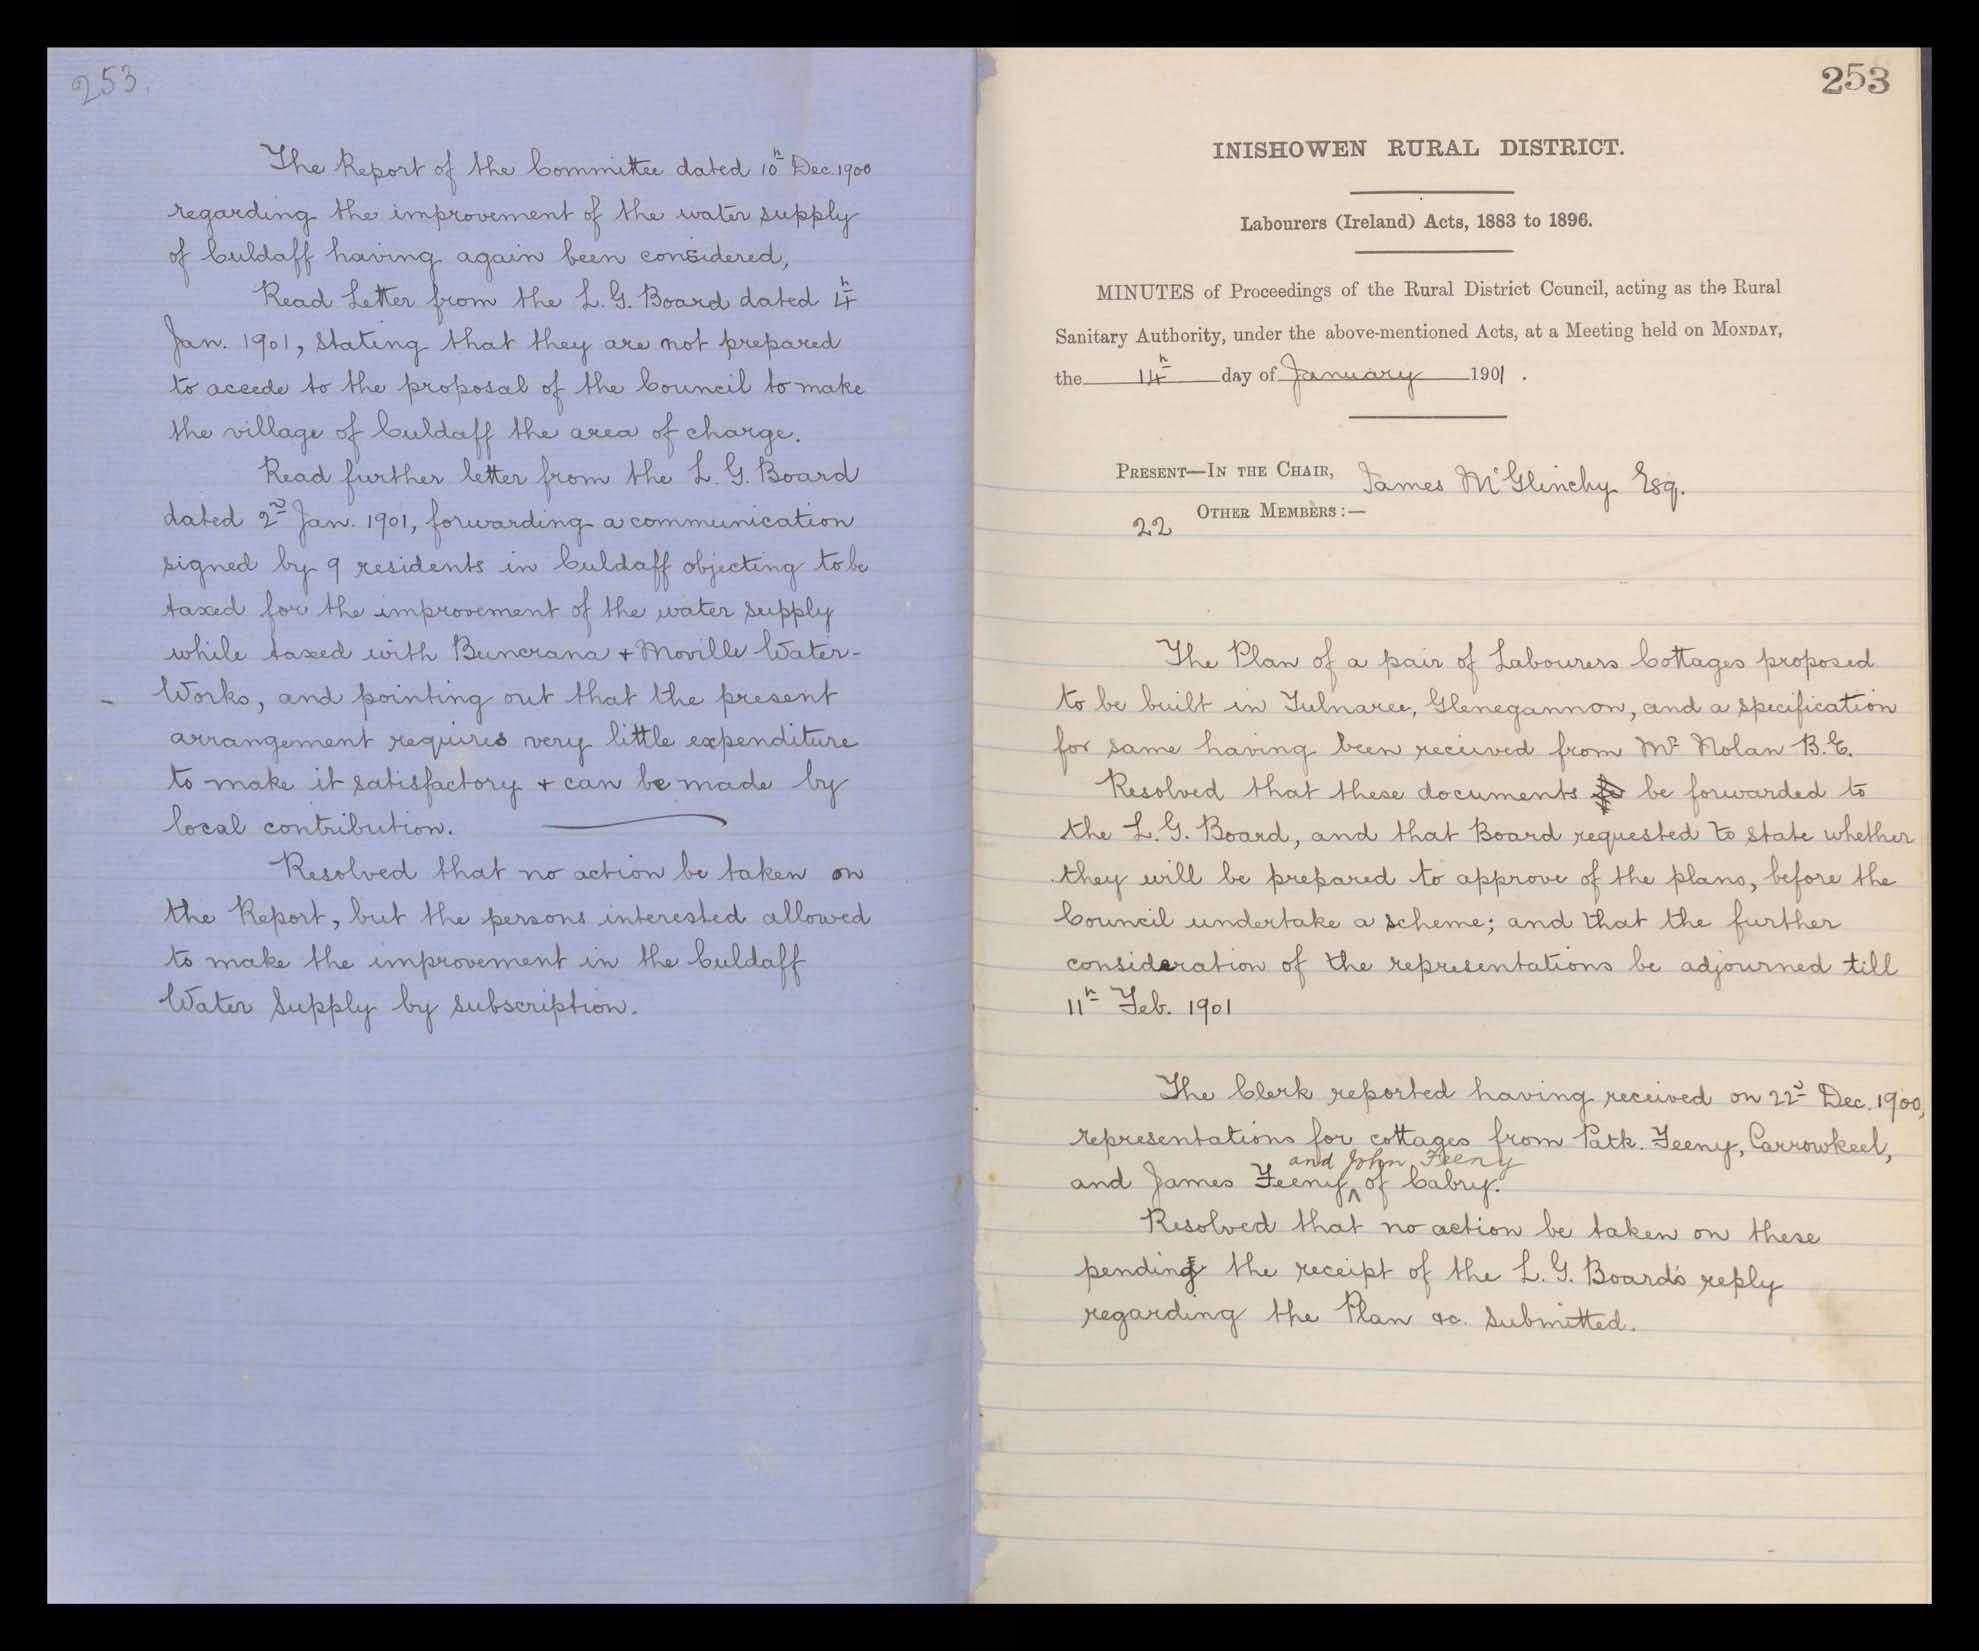 253.
The Report of the Committee dated 10h Dec. 1900
regarding the improvement of the water supply
of Culdaff having again been considered,
Read Letter from the L. G. Board dated 4h
Jan. 1901, stating that they are not prepared
to accede to the proposal of the Council to make
the village of Culdaff the area of charge.
Read further letter from the L. G. Board
dated 2nd Jan. 1901, forwarding a communication
signed by 9 residents in Culdaff objecting to be
taxed for the improvement of the water supply
while taxed with Buncrana + Moville Water-
Works, and pointing out that the present
arrangement requires very little expenditure
to make it satisfactory + can be made by
local contribution.
Resolved that no action be taken on
the Report, but the persons interested allowed
to make the improvement in the Culdaff
Water Supply by subscription.
253
INISHOWEN RURAL DISTRICT.
Labourers (Ireland) Acts, 1883 to 1896.
MINUTES of Proceedings of the Rural District Council, acting as the Rural
Sanitary Authority, under the above-mentioned Acts, at a Meeting held on MONDAY,
the 14h day of January 1901.
PRESENT—IN THE CHAIR, James McGlinchy Esq.
22 OTHER MEMBERS:—
The Plan of a pair of Labourers Cottages proposed
to be built in Tulnaree, Glenegannon, and a specification
for same having been received from Mr Nolan B.E.
Resolved that these documents be forwarded to
the L. G. Board, and that Board requested to state whether
they will be prepared to approve of the plans, before the
Council undertake a scheme; and that the further
consideration of the representations be adjourned till
11h Feb. 1901
The Clerk reported having received on 22d Dec. 1900,
representations for cottages from Patk. Feeny, Carrowkeel,
and John Feeny
and James Feeny ^ of Cabry.
Resolved that no action be taken on these
pending the receipt of the L. G. Board's reply
regarding the Plan &c. submitted.